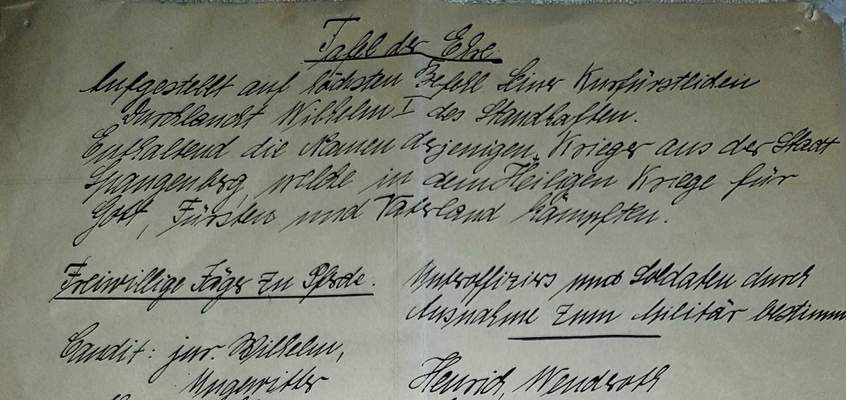 Tafel der Ehre.
Aufgestellt auf höchsten Befehl Seiner Kurfürstlichen
Durchlaucht Wilhelm I des Standhaften.
Enthaltend die Namen derjenigen Krieger aus der Stadt
Spangenberg, welche in dem Heiligen Kriege für
Gott, Fürsten und Vaterland kämpften.
Freiwillige Jäger zu Pferde.
Candit: jur. Wilhelm,
Ungewitter
Unteroffiziers und Soldaten durch
Ausnahme zum Militär bestimm
Henrich, Wenderoth